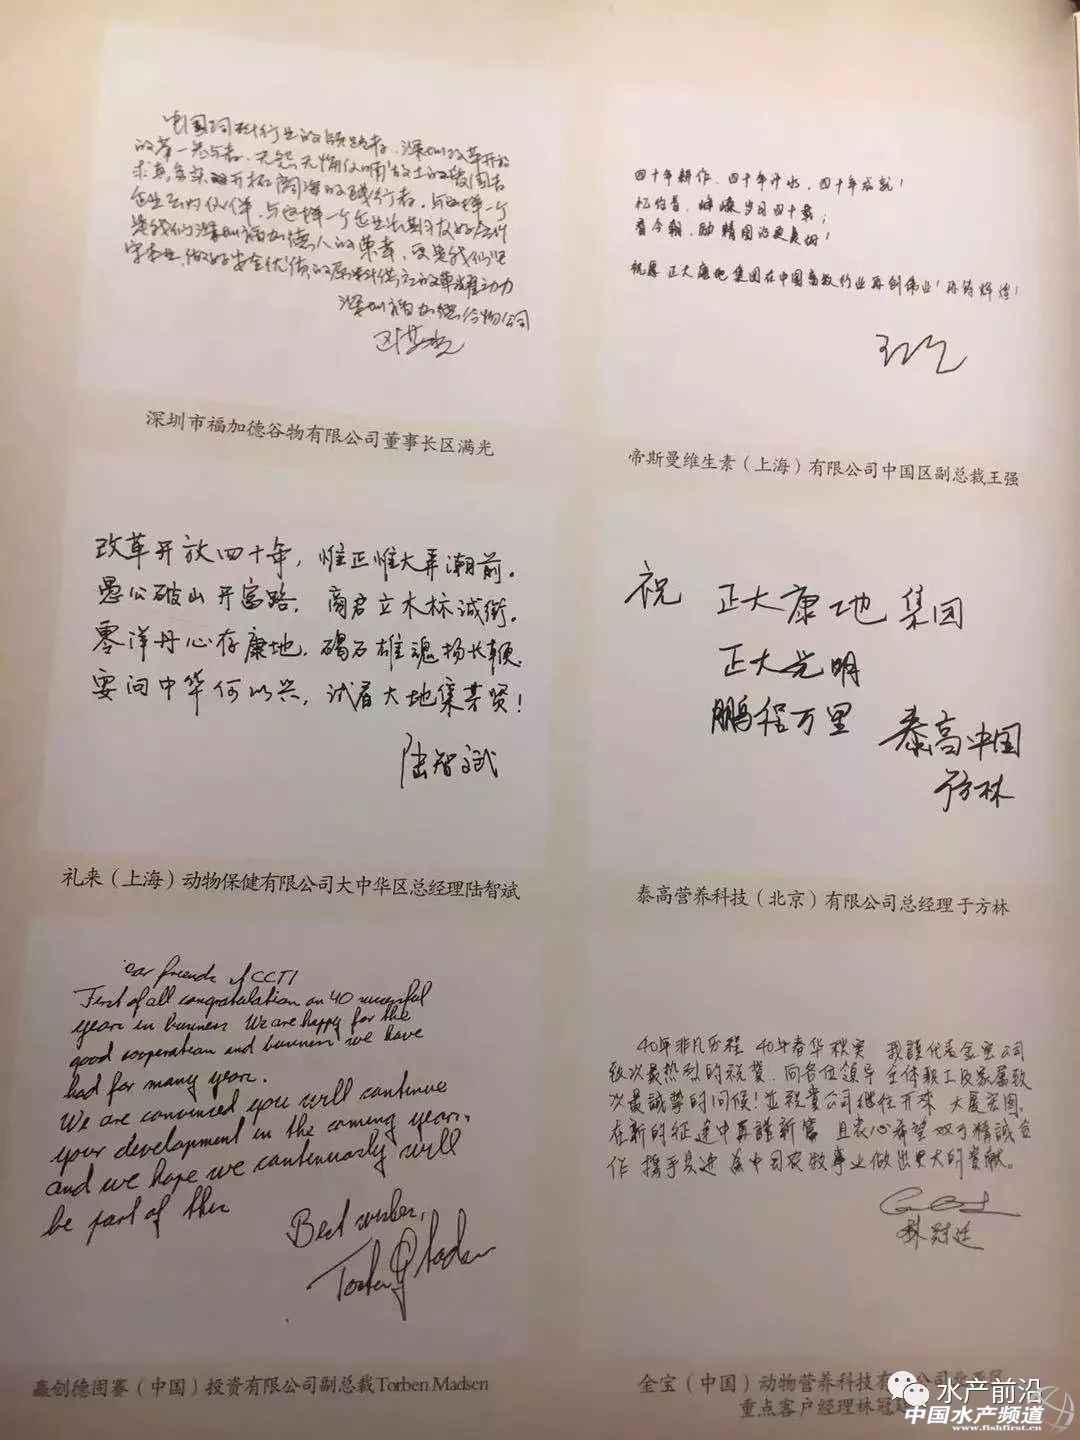 中国饲料行业的领跑者，深圳改革开放
的第一
求真
深圳福加德谷物公司
深圳市福加德谷物有限公司董事长区满光
四十年耕作，四十年汗水，四十年成就！
忆往昔，峥嵘岁月四十载；
看今朝，励精图治更美好！
祝愿正大康地集团在中国畜牧行业再创伟业！再铸辉煌！
帝斯曼维生素（上海）有限公司中国区副总裁王强
改革开放四十年，惟正惟大弄潮前。
愚公破山开富路，商君立木标诚衔。
零洋丹心存康地，碣石雄魂扬长鞭。
要问中华何以兴，试看大地集英贤！
陆智斌
礼来（上海）动物保健有限公司大中华区总经理陆智斌
祝 正大康地集团
正大光明
鹏程万里
泰高中国
于方林
泰高营养科技（北京）有限公司总经理于方林
Dear friends of CCTI
First of all congratulation on 40 successful
years in business We are happy for the
good cooperation and business we have
had for many years.
We are convinced you will continue
your development in the coming years.
and we hope we continuously will
be part of this
Best wishes,
Torben Madsen
赢创德固赛（中国）投资有限公司副总裁Torben Madsen
40年非凡历程 40年春华秋实 我謹代表金宝公司
致以最热烈的祝贺，向各位领导 全体职工及家属致
以最誠挚的问候！並祝贵公司继往开来 大展宏图，
在新的征途中再谱新篇 且衷心希望双方精誠合
作 携手共进 为中国农牧事业做出更大的贡献。
林冠廷
金宝（中国）动物营养科技有限公司
重点客户经理林冠廷
水产前沿
中国水产频道
www.fishfirst.cn